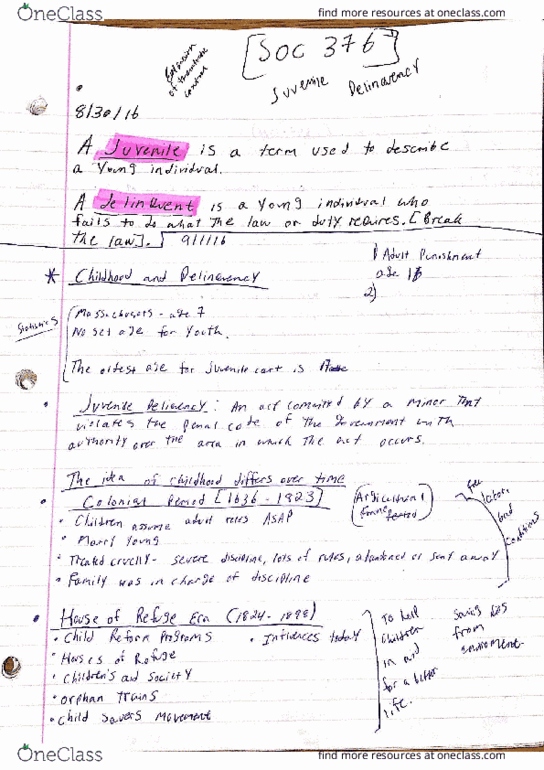 OneClass
find more resources at oneclass.com
[SOC 376]
Juvenile Delinquency
8/30/16
A Juvenile is a term used to describe
a young individual.
A delinquent is a young individual who
fails to do what the law or duty requires. [Break
the law]. 9/1/16
1) Adult Punishment
age 16
2)
* Childhood and Delinquency
Statistics
Massachusetts - age 7
No set age for youth.
The oldest age for juvenile court is
• Juvenile Delinquency: An act commited by a minor that
violates the penal code of the government with
authority over the area in which the act occurs.
The idea of childhood differs over time
• Colonial Period [1636 - 1823]
(Agricultural
)
free
labor
bad
conditions
• Children assume adult roles ASAP
• Marry young
• Treated cruelly - severe discipline, lots of rules, abandoned or sent away
• Family was in charge of discipline
• House of Refuge Era (1824-1898)
• Child Reform Programs
• Influences today
• Houses of Refuge
• Children's aid society
• orphan trains
• Child Savers Movement
To help
children
in and
for a better
life.
Saving kids
from
enviroment
OneClass
find more resources at oneclass.com